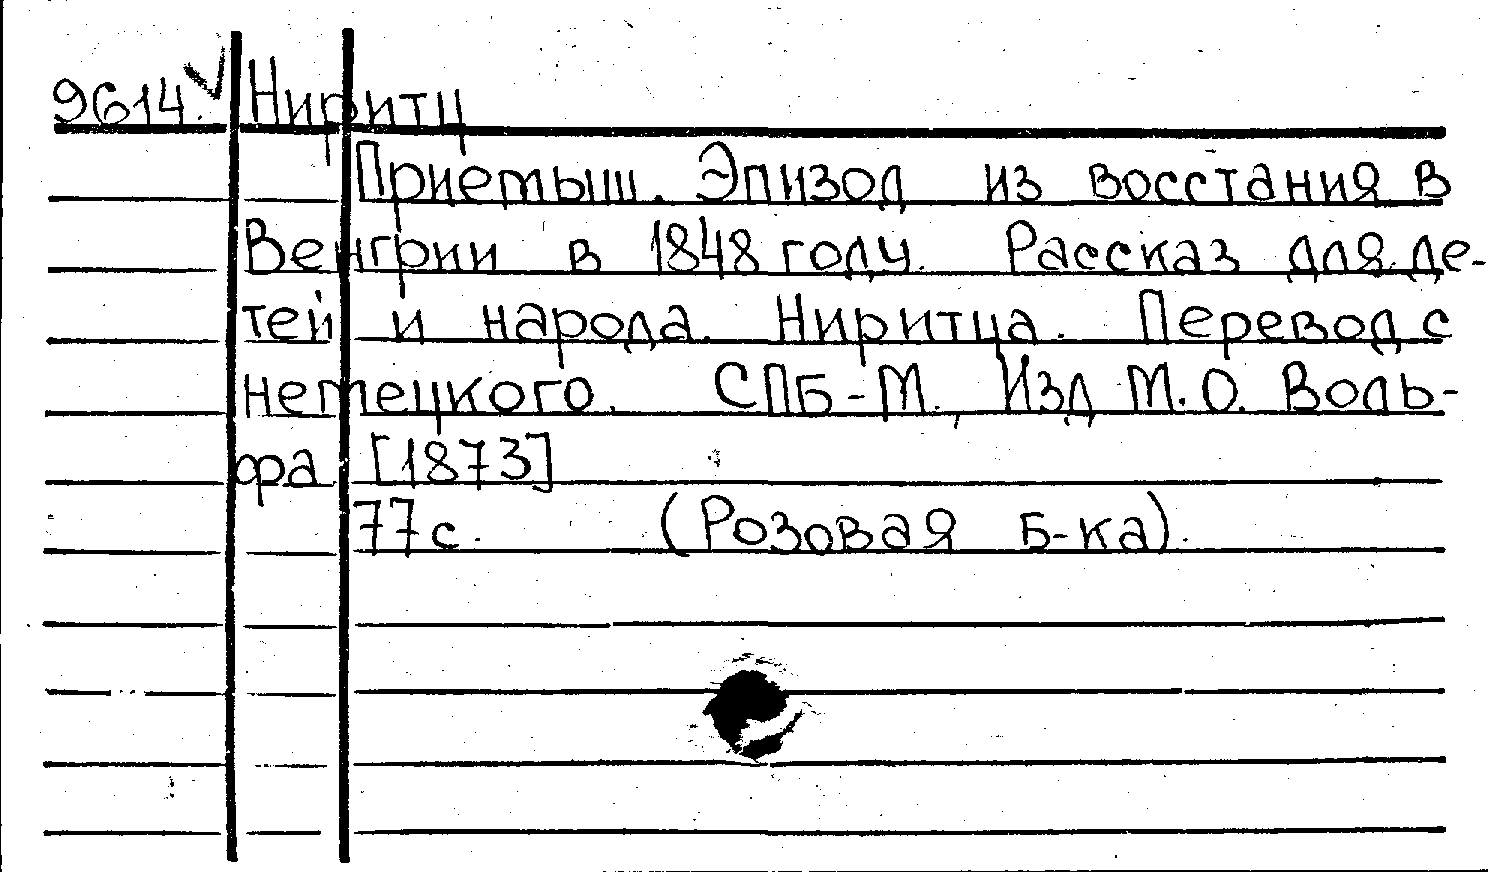 9614. Ниритц
Приемыш. Эпизод из восстания в
Венгрии в 1848 году. Рассказ для де-
тей и народа. Ниритца. Перевод с
немецкого. СПБ-М., Изд М.О. Воль-
фа [1873]
77с. (Розовая б-ка).